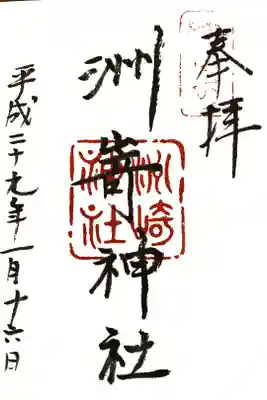 奉拝
洲嵜神社
洲崎神社
平成二十九年一月十六日